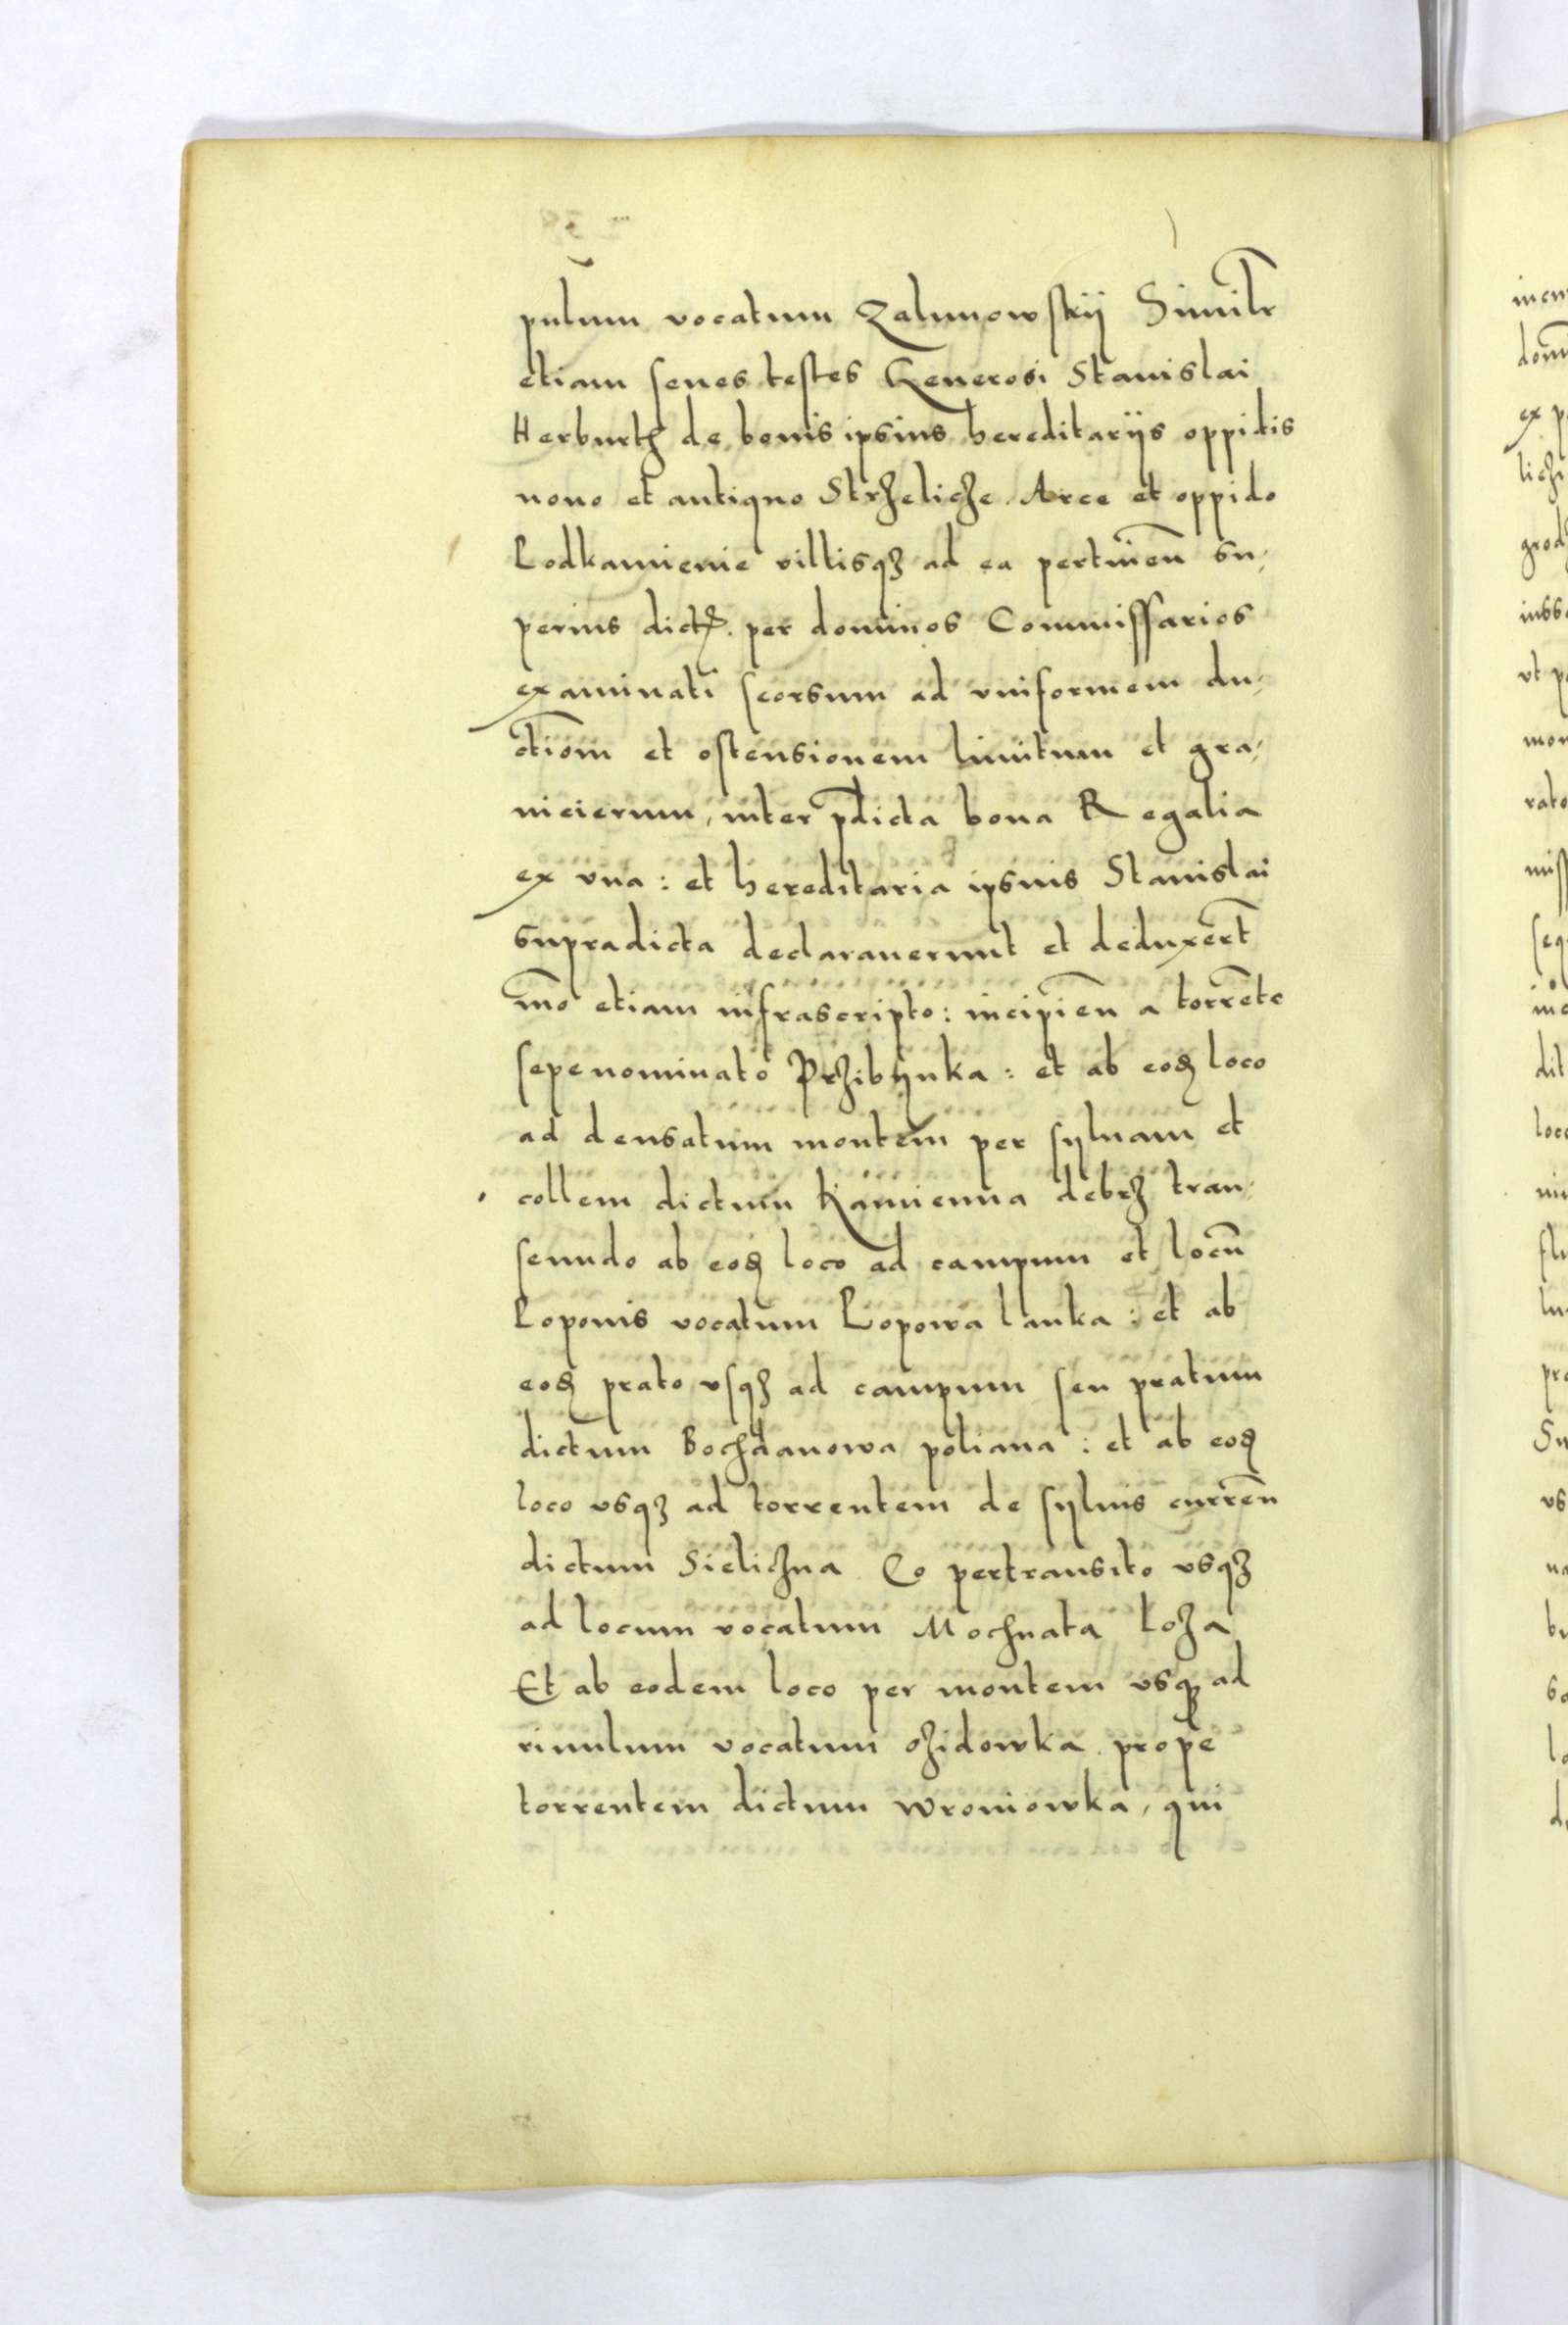 pulum vocatum Zalunowskÿ Similr̄
etiam senes testes Generosi Stanislai
Herburth de bonis ipsius hereditarÿs oppidis
nouo et antiquo Strzelicze Arce et oppido
Podkamienie villisqʒ ad ea pertinen̄ su⸗
perius dictꝭ. per dominos Commissarios
examinati seorsum ad vniformem du⸗
ctiom̄ et ostensionem limitum et gra⸗
nicierum, inter p̄dicta bona Regalia
ex vna : et hereditaria ipsius Stanislai
supradicta declarauerunt et deduxer̄t
mō etiam infrascripto : incipien̄ a torrēte
sepenominato Przibÿnka : et ab eoꝺ loco
ad densatum montem per sÿluam et
collem dictum Kamienna debrz tran⸗
seundo ab eoꝺ loco ad campum et locū
Poponis vocatum Popowa lanka : et ab
eoꝺ prato vsqʒ ad campum seu pratum
dictum Bochdanowa poliana : et ab eoꝺ
loco vsqʒ ad torrentem de sÿluis curren̄
dictum Sieliczna Eo pertransito vsqʒ
ad locum vocatum Mochnata Loza
Et ab eodem loco per montem vsqʒ ad
riuulum vocatum ozidowka prope
torrentem dictum wroniowka, qui